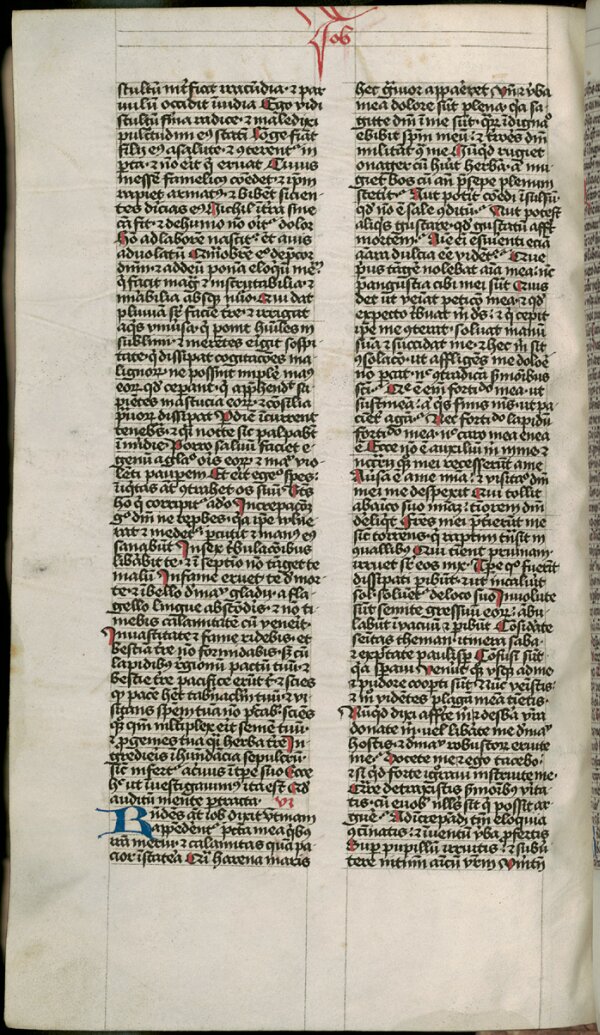 Job
stultū int̄ficit iracūdia · ⁊ par
vulū occidit īvidia Ego vidi
stultū firma radice · ⁊ maledixi
pulcritudini eiꝰ statī Longe fiāt
filii eiꝰ a salute · ⁊ ꝯterent̄ in
porta · ⁊ nō erit qui eruat Cuius
messē famelicꝰ comedet · ⁊ ip̄m
rapiet armatꝰ · ⁊ bibēt sicien
tes diuicias eiꝰ Nichil ī terra sine
cā fit · ⁊ de humo nō oritᷣ dolor
Hō ad laborē nascitᷣ et auis
ad volatū Quāobrē ego dep̄cor
dnm · ⁊ ad deū ponā eloquiū meū
qui facit magna ⁊ inscrutabilia · ⁊
mirabilia absqꝫ nūero Qui dat
pluviā suꝑ faciē terre · ⁊ irrigat
aqis vniuersa · qui ponit humiles in
sublimi · ⁊ merentes erigit sospi
tate · qui dissipat cogitacōes ma
lignoꝝ · ne possint implere manꝰ
eoꝝ quod ceperant · qui app̄hendit sa
pientes in astucia eoꝝ · ⁊ cōsilia
prauoꝝ dissipat Per diē incurrent
tenebras · ⁊ qasi nocte sic palpabūt
in meridie Porro saluū faciet e
genū a gladio oris eoꝝ · ⁊ de manu vio
lenti pauperem Et erit egeno spes ·
iniqitas autem ꝯtrahet os suum Beatus
homo qui corripitᷣ a deo Increpacōem
ergo dn̄i ne reprobes · qa ip̄e vulne
rat ⁊ medetᷣ · percutit ⁊ manꝰ eiꝰ
sanabūt In sex tribulacōibus
liberabit te · ⁊ in septīa nō tanget te
malū In fame eruet te de mor
te · ⁊ in bello de manu gladii · a fla
gello lingue abscōderis · ⁊ nō ti
mebis calamitatē cū venerit
In vastitate ⁊ fame ridebis · et
bestiā terre nō formidabis · sꝫ cū
lapidibꝰ regionū pactū tuū · ⁊
bestie terre pacifice erūt tibi · ⁊ scies
quod pacē hēat tabernaclm̄ tuū · ⁊ vi
sitans speciem tuā nō peccabis · scies
quoqꝫ qm̄ multiplex erit semē tuū ·
⁊ progenies tua qasi herba terre In
gredieris in habundācia sepulcrū ·
sicut infertᷣ aceruꝰ in tempore suo Ecce
hoc ut inuestigauimꝰ ita est Quod
auditū mente pertracta · vi
Respondēs autem iob dixit Vtinam
appenderentᷣ peccata mea qibꝰ
irā merui · ⁊ calamitas quā pa
cior in statera Quasi harena maris
hec grauior appareret Vnde ⁊ verba
mea dolore sūt plena · qa sa
gitte dn̄i in me sūt · quaꝝ indignacio
ebibit spm̄ meū · ⁊ terrores dn̄i
militāt ꝯtra me Nūquid rugiet
onager cū habuerit herbā · aut mu
giet bos cū an̄ presepe plenum
steterit Aut poterit comedi insulsum
quod nō est sale ꝯditū Aut potest
aliqis gustare · quod gustatū affert
mortem Aīe em̄ esurienti eciā
amara dulcia esse vident̄ Que
prius tangere nolebat aīa mea · nūc
p̄ angustia cibi mei sunt Quis
det ut veniat peticō mea · ⁊ quod
expecto tribuat michi ds̄ · ⁊ qui cepit
ip̄e me ꝯterat · soluat manū
suā ⁊ succidat me · ⁊ hec michi sit
ꝯsolacō · ut affligēs me dolore
nō parcat · nec ꝯtradicā sermōibus
sancti · Que est em̄ fortitudo mea · ut
sustineam · aut qis finis meus · ut pa
cienter agā · Nec fortitudo lapidū
fortitudo mea · nec caro mea enea
est Ecce nō est auxiliū michi in me · ⁊
necessarii quoqꝫ mei recesserūt a me
Qui tollit
ab amico suo misericordiam · timorem dn̄i
derelinqit Fratres mei preterierūt me
sicut torrens · qui raptim trāsit in
ꝯuallibꝰ Qui timent pruinam
irruet suꝑ eos nix · Tempore quo fuerint
dissipati peribūt · ⁊ ut incaluerit
soluentᷣ de loco suo Inuolute
sūt semite gressuum eoꝝ · ambu
labūt in vacuū ⁊ peribūt Cōsiderate
semitas theman · itinera saba
⁊ expectate paulisper Confusi sūt
qa speraui Venerūt quoqꝫ usqꝫ ad me
⁊ pudore coopti sūt Nūc venistis ·
⁊ modo videntes plagam meā timetis ·
Nūquid dixi afferte michi ⁊ de sba vestra
donate michi · vel liberate me de manu
hostis · ⁊ de manu robustoꝝ eruite
me · Docete me ⁊ ego tacebo ·
⁊ si quid forte ignoraui instruite me ·
Quare detraxistis sermōibus verita
tis · cū e vobis nullus sit qui possit ar
guere me · Ad increpandū tm̄ eloquia
ꝯcinatis · ⁊ in ventū verba profertis
Super pupillū irruitis · ⁊ subuer
tere nitimini amicū vestrum Verūtn̄